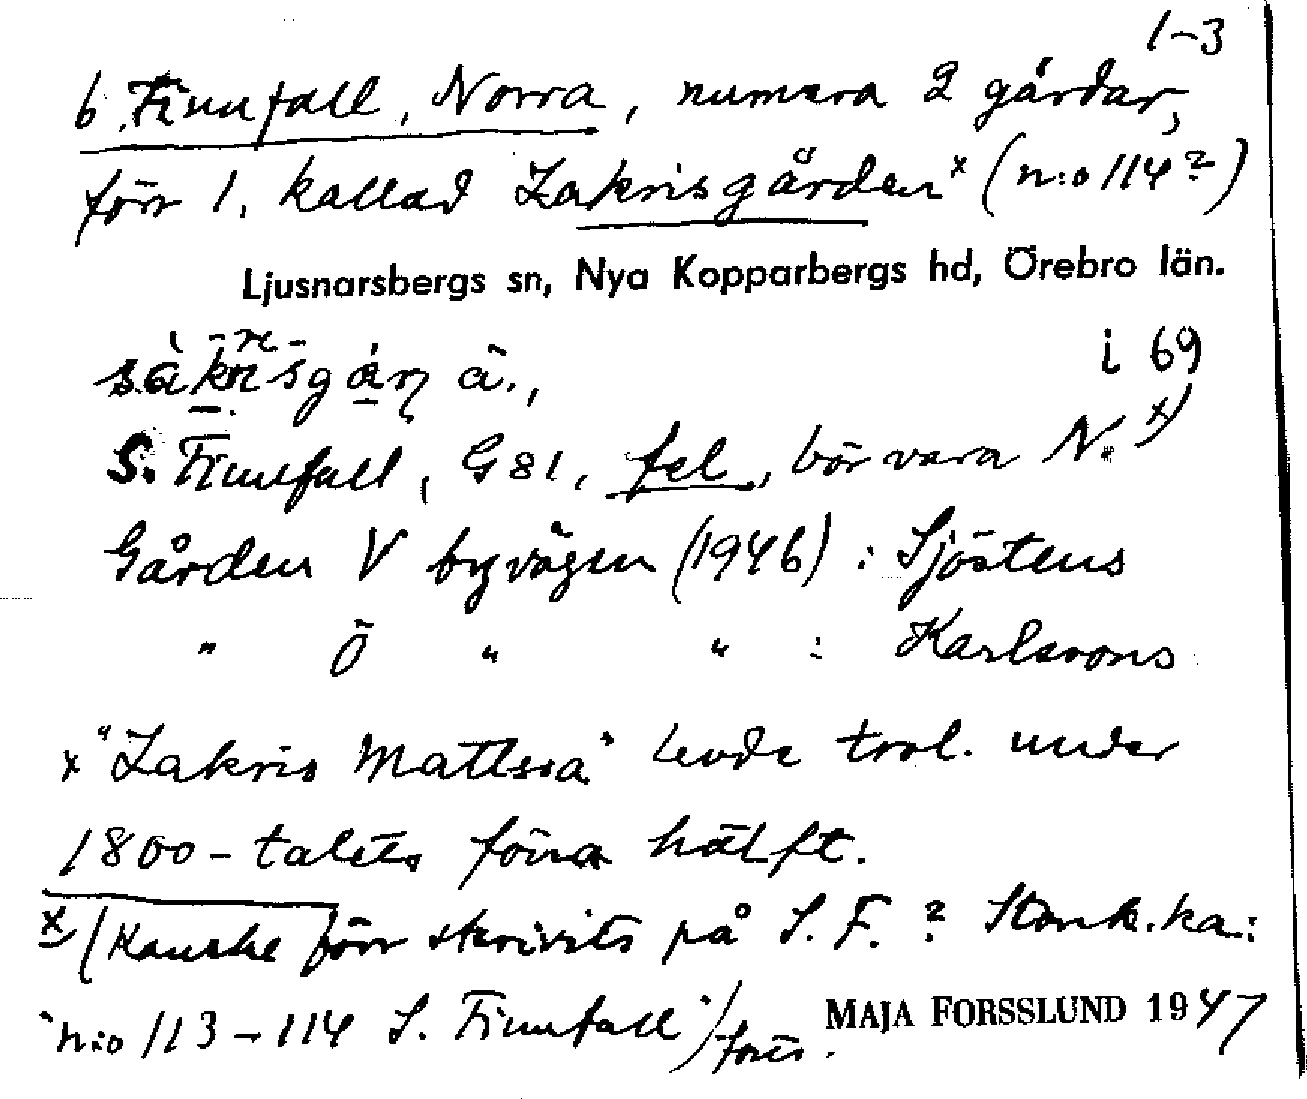 1-3
6. Finnfall, Norra, numera 2 gårdar,
förr 1, kallad Zakrisgården x (n:o 114?)
Ljusnarsbergs sn, Nya Kopparbergs hd, Örebro län.
i 69
S. Finnfall, G 81, fel, bör vara N. x)
Gården V byvägen (1946) : Sjöstens
" Ö " " : Karlsrons
x "Zakris Mattssa" levde trol. under
1800-talets förra hälft.
x (Kanske förr skrivits på S. F.? Stomk.ka:
"n:o 113-114 S. Finnfall")
forts.
MAJA FORSSLUND 1947